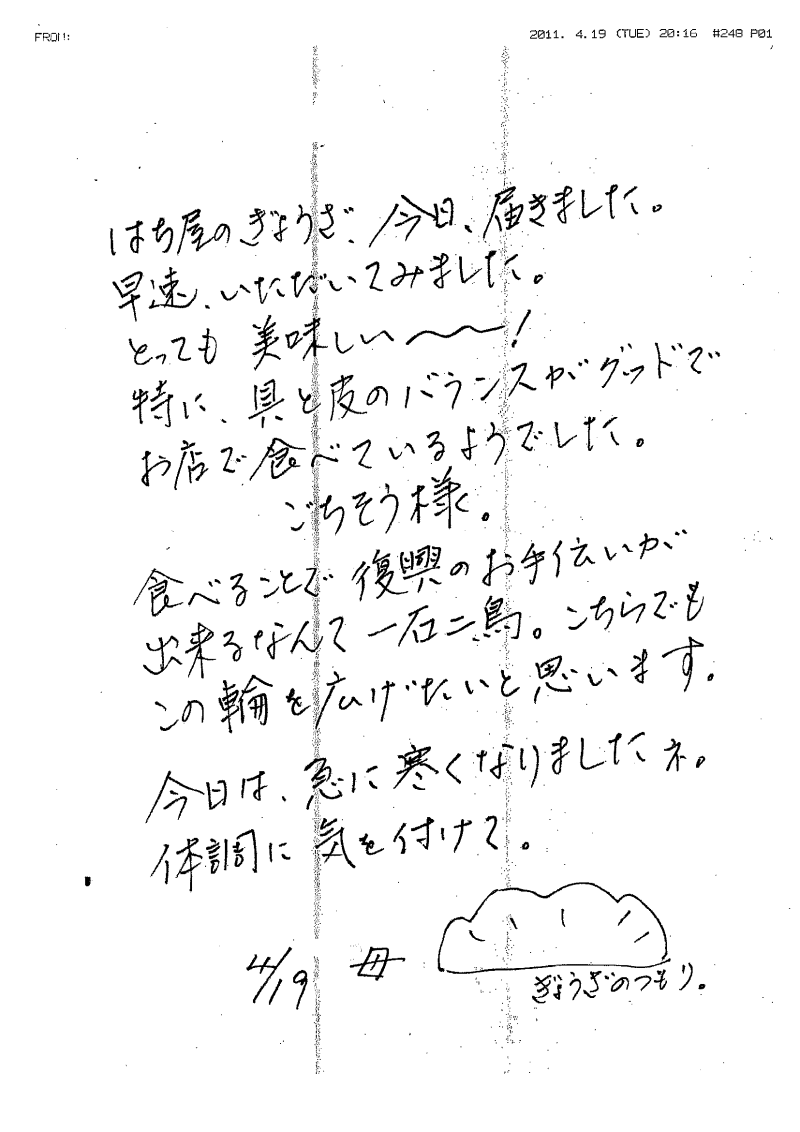 FROM:
2011. 4.19 (TUE) 20:16 #248 P01
はち屋のぎょうざ、今日、届きました。
早速、いただいてみました。
とっても 美味しい〜〜!
特に、具と皮のバランスがグッドで
お店で食べているようでした。
ごちそう様。
食べることで復興のお手伝いが
出来るなんて一石二鳥。こちらでも
この輪を広げたいと思います。
今日は、急に寒くなりましたネ。
体調に気を付けて。
4/19 母
ぎょうざのつもり。